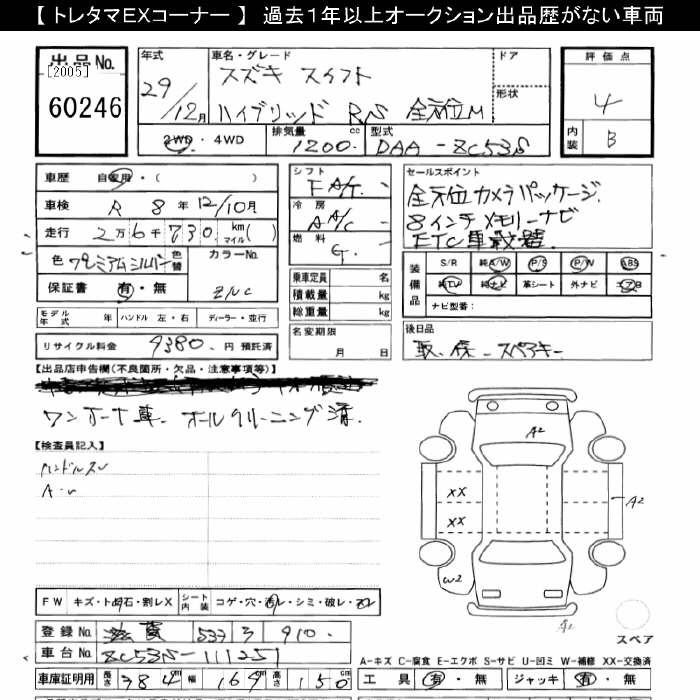 【 トレタマＥＸコーナー 】 過去１年以上オークション出品歴がない車両
出品No.
[2005]
60246
年式
29/12月
車名・グレード
スズキ スイフト
ハイブリッド RS 全方位M
ドア
形状
評価点
4
内装
B
2WD・4WD
排気量
1200. cc
型式
DAA-ZC53S
車歴
自家用・( )
車検
R 8年12/10月
走行
2万6千730. km マイル( )
色
プレミアムシルバー
色替
カラーNo.
ZNC
保証書
有・無
モデル年式
年
ハンドル 左・右
ディーラー・並行
リサイクル料金
9380. 円 預託済
シフト
F A/T.
冷房
A A/C
燃料
G.
乗車定員 名
積載量 kg
総重量 kg
名変期限
月 日
セールスポイント
全方位カメラパッケージ.
8インチメモリーナビ
ETC車載器.
装備品
S/R 純A/W P/S P/W ABS
純TV 純ナビ 革シート 外ナビ エアB
ナビ型番：
後日品
取.保.スペアキー
【出品店申告欄(不良箇所・欠品・注意事項等)】
ワンオーナー車. オールクリーニング済.
【検査員記入】
ハンドルスレ
A2
A2
XX
XX
W2
A2
スペア
FW
キズ・ト 石・割レX
シート内装
コゲ・穴・ レ・シミ・破レ・
登録No.
滋賀 533 了 910.
車台No.
ZC53S-111251
A-キズ C-腐食 E-エクボ S-サビ U-凹ミ W-補修 XX-交換済
車庫証明用
長さ 384 幅 169 高さ 150 cm
工具 有・無
ジャッキ 有・無